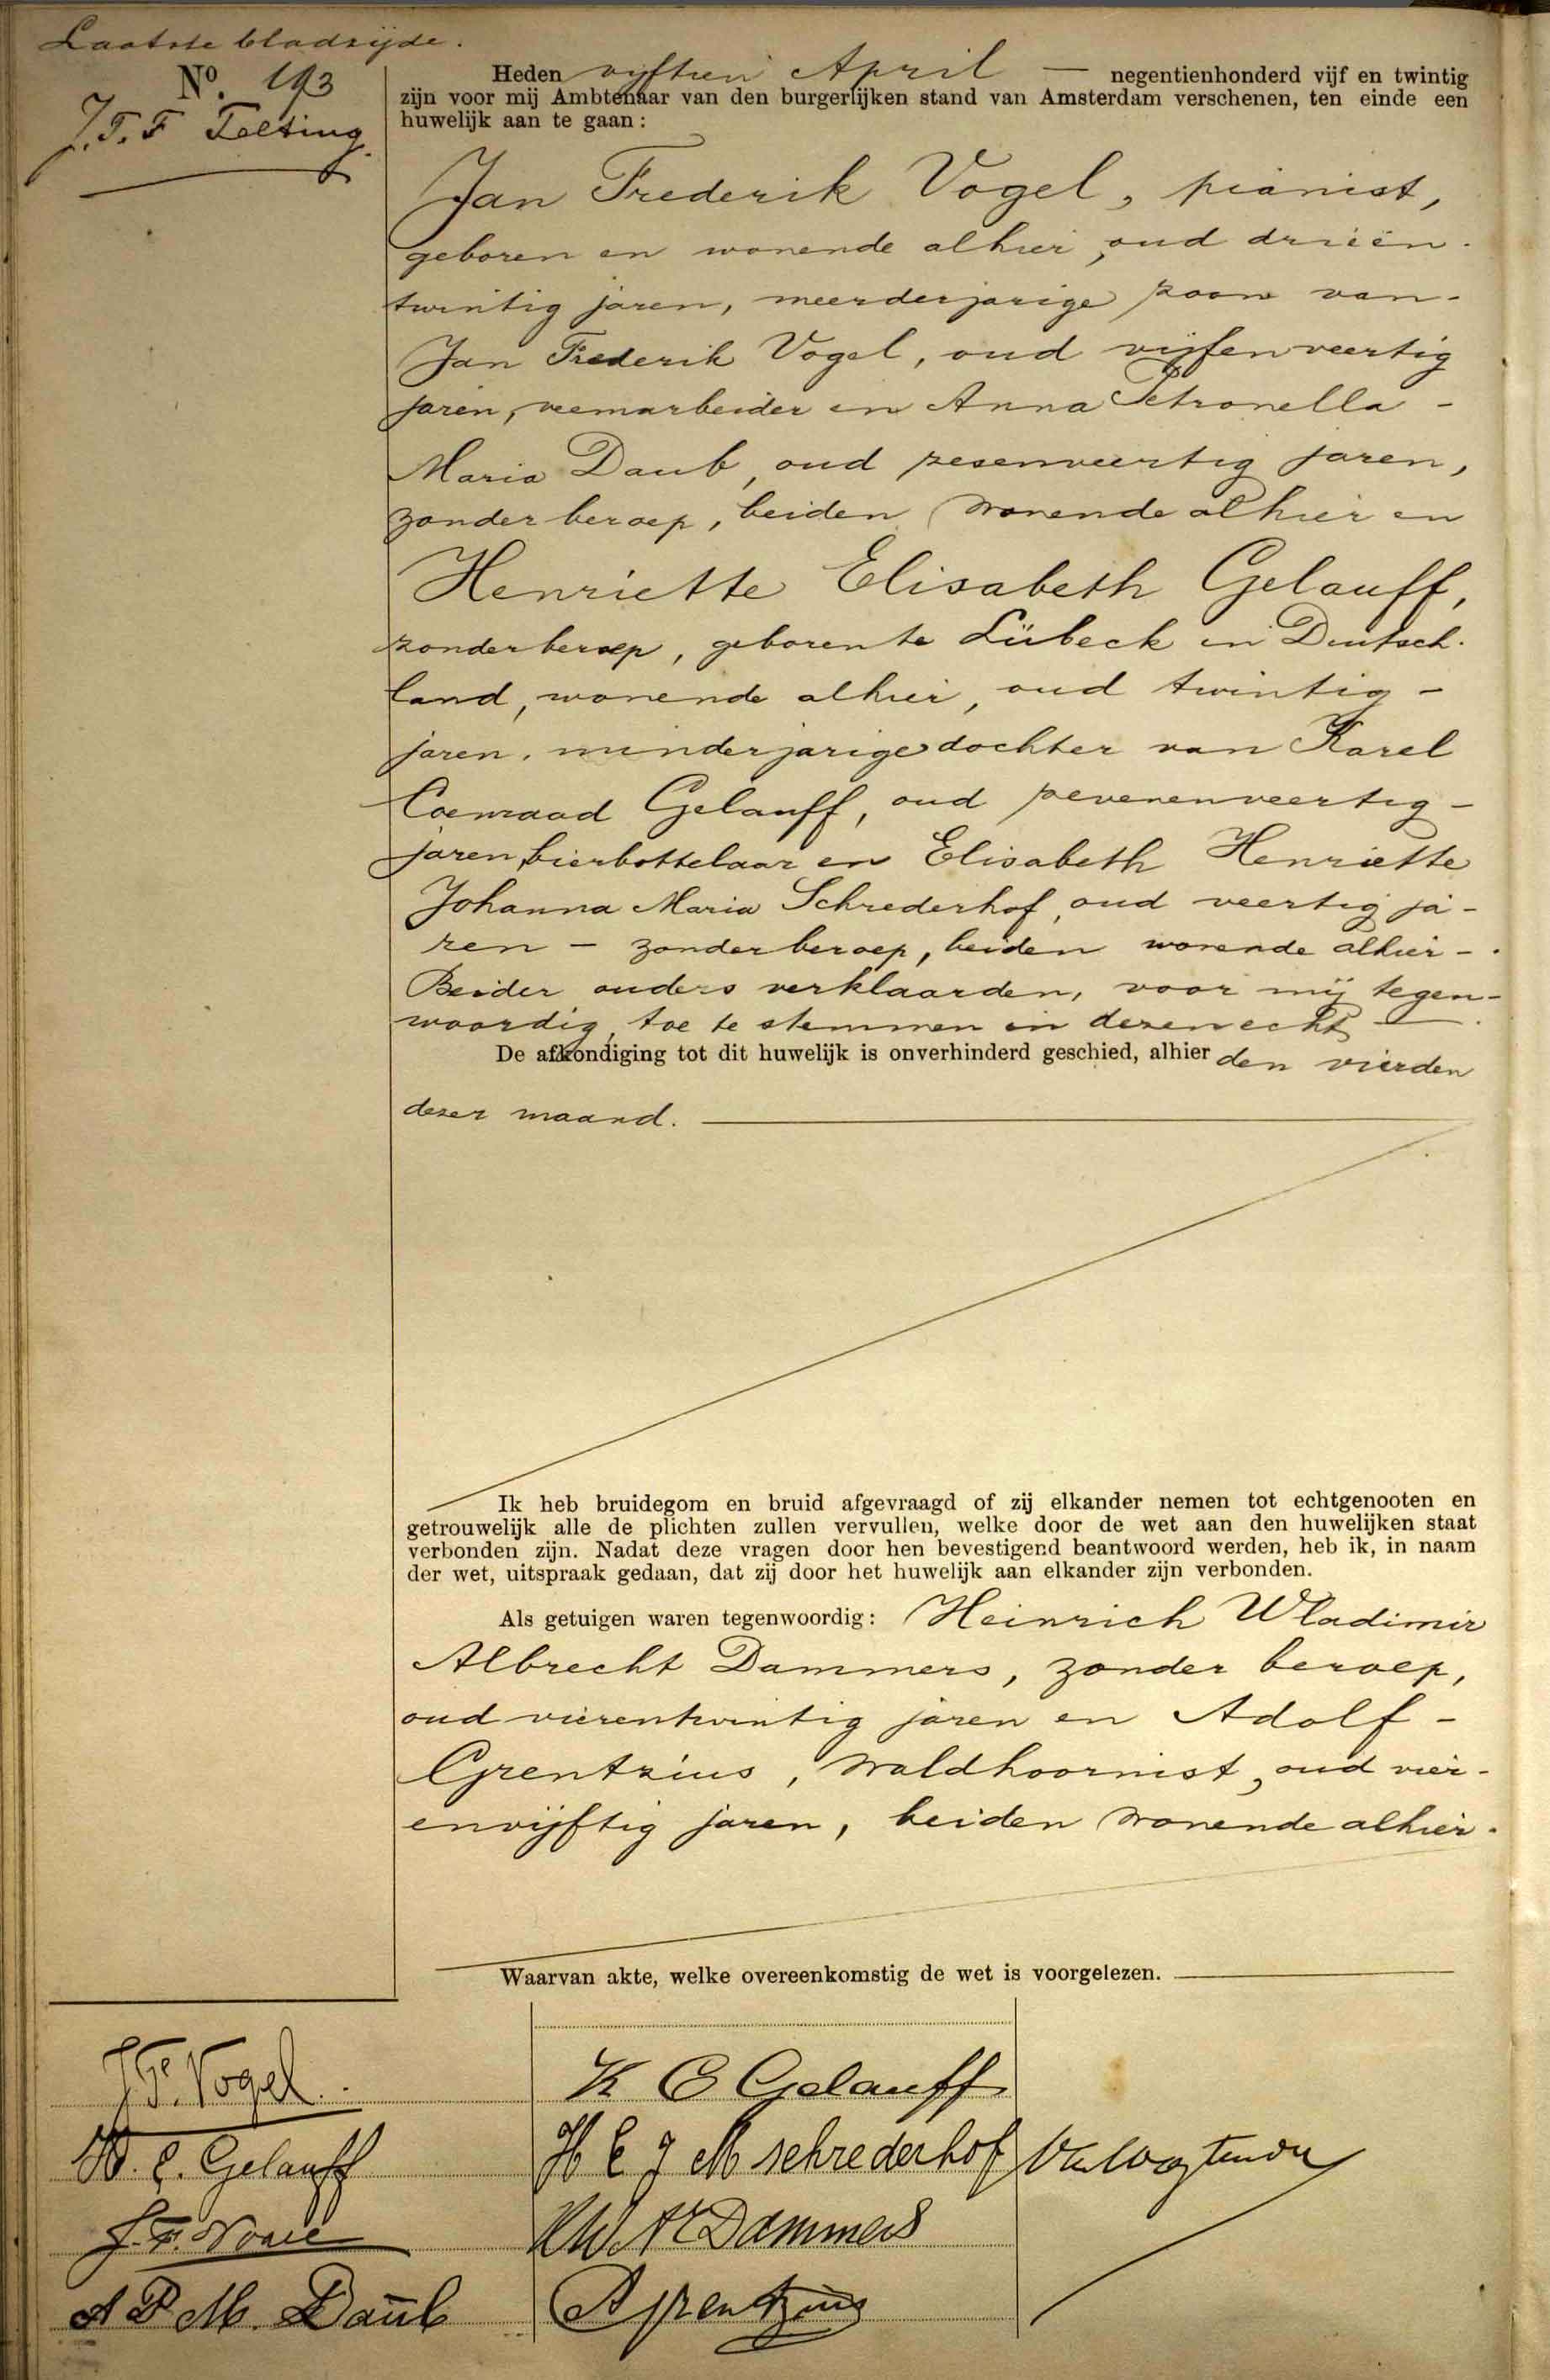 Laatste bladzijde.
No. 193
J. F. F Telting
Heden vijftien April — negentienhonderd vijf en twintig
zijn voor mij Ambtenaar van den burgerlijken stand van Amsterdam verschenen, ten einde een
huwelijk aan te gaan:
Jan Frederik Vogel, pianist,
geboren en wonende alhier, oud drieën-
twintig jaren, meerderjarige zoon van-
Jan Frederik Vogel, oud vijfenveertig
jaren, veemarbeider en Anna Petronella -
Maria Daub, oud zesenveertig jaren,
zonder beroep, beiden wonende alhier en
Henriette Elisabeth Gelauff,
zonder beroep, geboren te Lübeck in Deutsch-
land, wonende alhier, oud twintig -
jaren, minderjarige dochter van Karel
Coenraad Gelauff, oud zevenenveertig -
jaren, bierbottelaar en Elisabeth Henriette
Johanna Maria Schrederhof, oud veertig ja-
ren - zonder beroep, beiden wonende alhier -
Beider ouders verklaarden, voor mij tegen-
woordig, toe te stemmen in dezen echt —
De afkondiging tot dit huwelijk is onverhinderd geschied, alhier den vierden
dezer maand.
Ik heb bruidegom en bruid afgevraagd of zij elkander nemen tot echtgenooten en
getrouwelijk alle de plichten zullen vervullen, welke door de wet aan den huwelijken staat
verbonden zijn. Nadat deze vragen door hen bevestigend beantwoord werden, heb ik, in naam
der wet, uitspraak gedaan, dat zij door het huwelijk aan elkander zijn verbonden.
Als getuigen waren tegenwoordig: Heinrich Wladimir
Albrecht Dammers, zonder beroep,
oud vierentwintig jaren en Adolf -
Grentzius, waldhoornist, oud vier-
envijftig jaren, beiden wonende alhier.
Waarvan akte, welke overeenkomstig de wet is voorgelezen.
J. Fr. Vogel
K C Gelauff
H. E. Gelauff
H E J M schrederhof
J. F.
H W Ar Dammers
A P M. Daub
A Grentzius